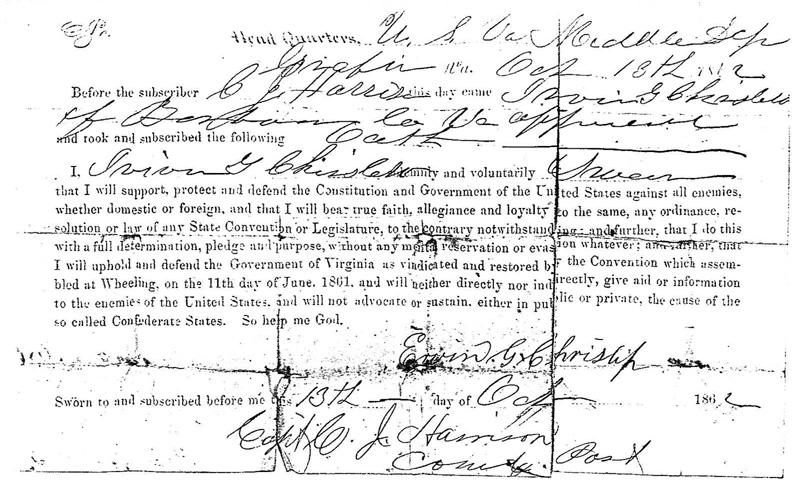 Head Quarters, U. S. Va Middle Dep
Va. Oct 13th 1862
Before the subscriber C J Harrison this day came Irvin G Chislett
of Co Va
and took and subscribed the following Oath
I, Irvin G Chislett solemnly and voluntarily Swear
that I will support, protect and defend the Constitution and Government of the United States against all enemies,
whether domestic or foreign, and that I will bear true faith, allegiance and loyalty to the same, any ordinance, re-
solution or law of any State Convention or Legislature, to the contrary notwithstanding; and further, that I do this
with a full determination, pledge and purpose, without any mental reservation or evasion whatever; and further, that
I will uphold and defend the Government of Virginia as vindicated and restored by the Convention which assem-
bled at Wheeling, on the 11th day of June, 1861, and will neither directly nor indirectly, give aid or information
to the enemies of the United States, and will not advocate or sustain, either in public or private, the cause of the
so called Confederate States. So help me God.
Erwin G. Chrislip
Sworn to and subscribed before me this 13th day of Oct 1862
Capt C. J. Harrison
Comdg. Post